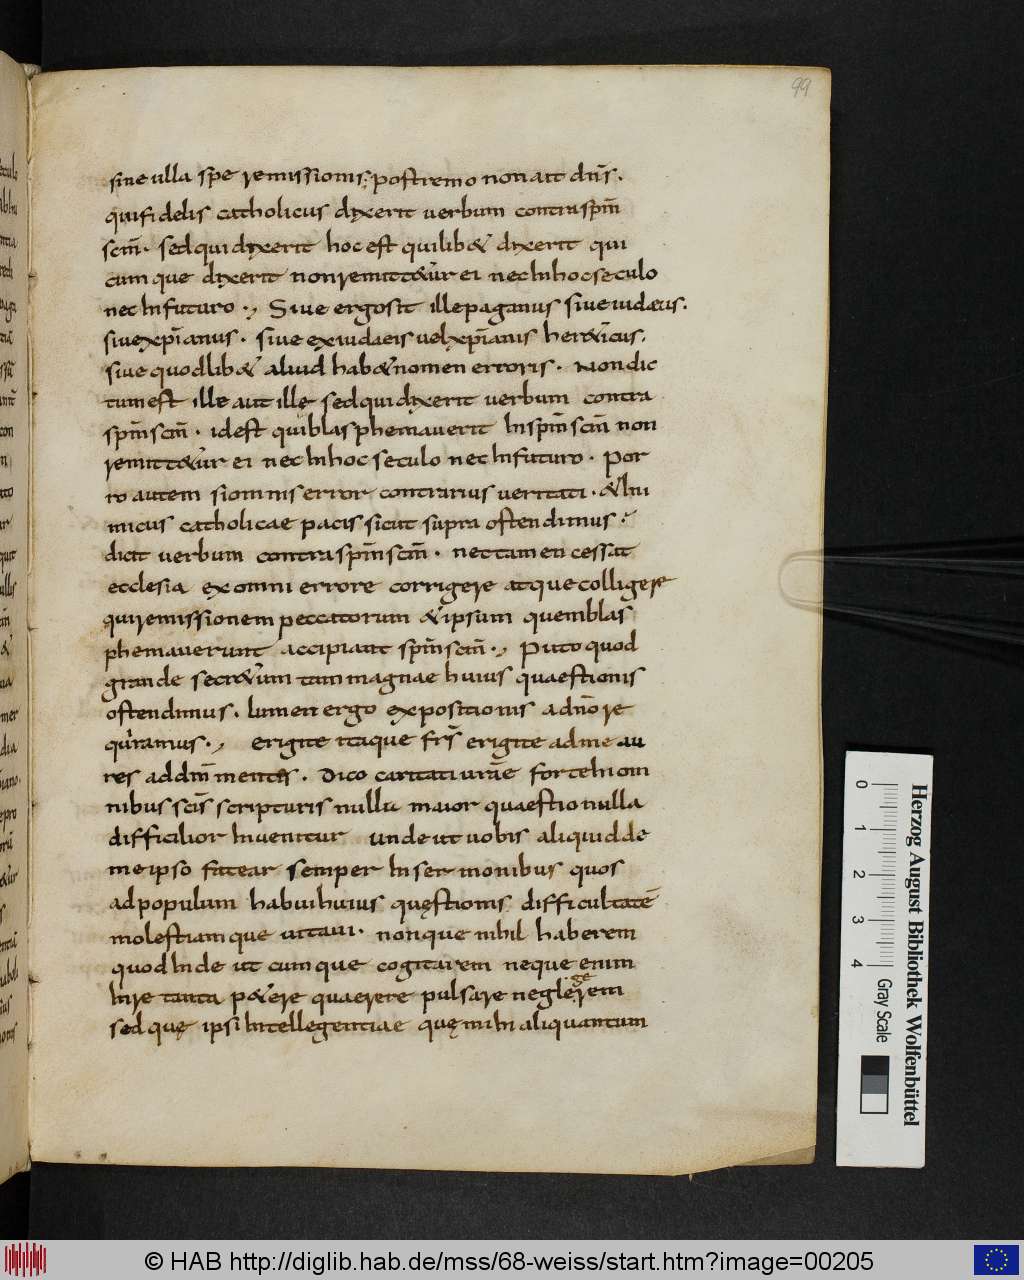 99
sine ulla spe remissionis; postremo non ait dn̄s.
qui fidelis catholicus dixerit verbum contra sp̄m
sc̄m. sed qui dixerit hoc est quilib& dixerit qui
cumque dixerit non remitt&ur ei nec in hoc seculo
nec in futuro ., Sive ergo sit ille paganus sive iudaeus.
sive xp̄ianus. sive ex iudaeis vel xp̄ianis her&icus.
sive quodlib& aliud hab& nomen erroris. Non dic
tum est ille aut ille sed qui dixerit verbum contra
sp̄m sc̄m. id est qui blasphemaverit in sp̄m sc̄m non
remitt&ur ei nec in hoc seculo nec in futuro. Por
ro autem si omnis error contrarius veritati. & ini
micus catholicae pacis sicut supra ostendimus.
dicit verbum contra sp̄m sc̄m. nec tamen cessat
ecclesia ex omni errore corrigere atque colligere
qui remissionem peccatorum & ipsum quem blas
phemaverunt accipiant sp̄m sc̄m ., Puto quod
grande secr&um tam magnae huius quaestionis
ostendimus. lumen ergo expositionis a dn̄o re
quiramus ., erigite itaque fr̄s erigite ad me au
res ad dm̄ mentes. Dico caritati vr̄ae forte in om
nibus sc̄is scripturis nulla maior quaestio nulla
difficilior invenitur unde ut vobis aliquid de
me ipso fatear semper in sermonibus quos
ad populum habui huius quęstionis difficultatē
molestiamque vitavi. non que nihil haberem
quod inde ut cumque cogitarem neque enim
in re tanta p&ere quaerere pulsare neglegerem
sed quę ipsi intellegentiae quę mihi aliquantum
Herzog August Bibliothek Wolfenbüttel
0 1 2 3 4
Gray Scale
© HAB http://diglib.hab.de/mss/68-weiss/start.htm?image=00205